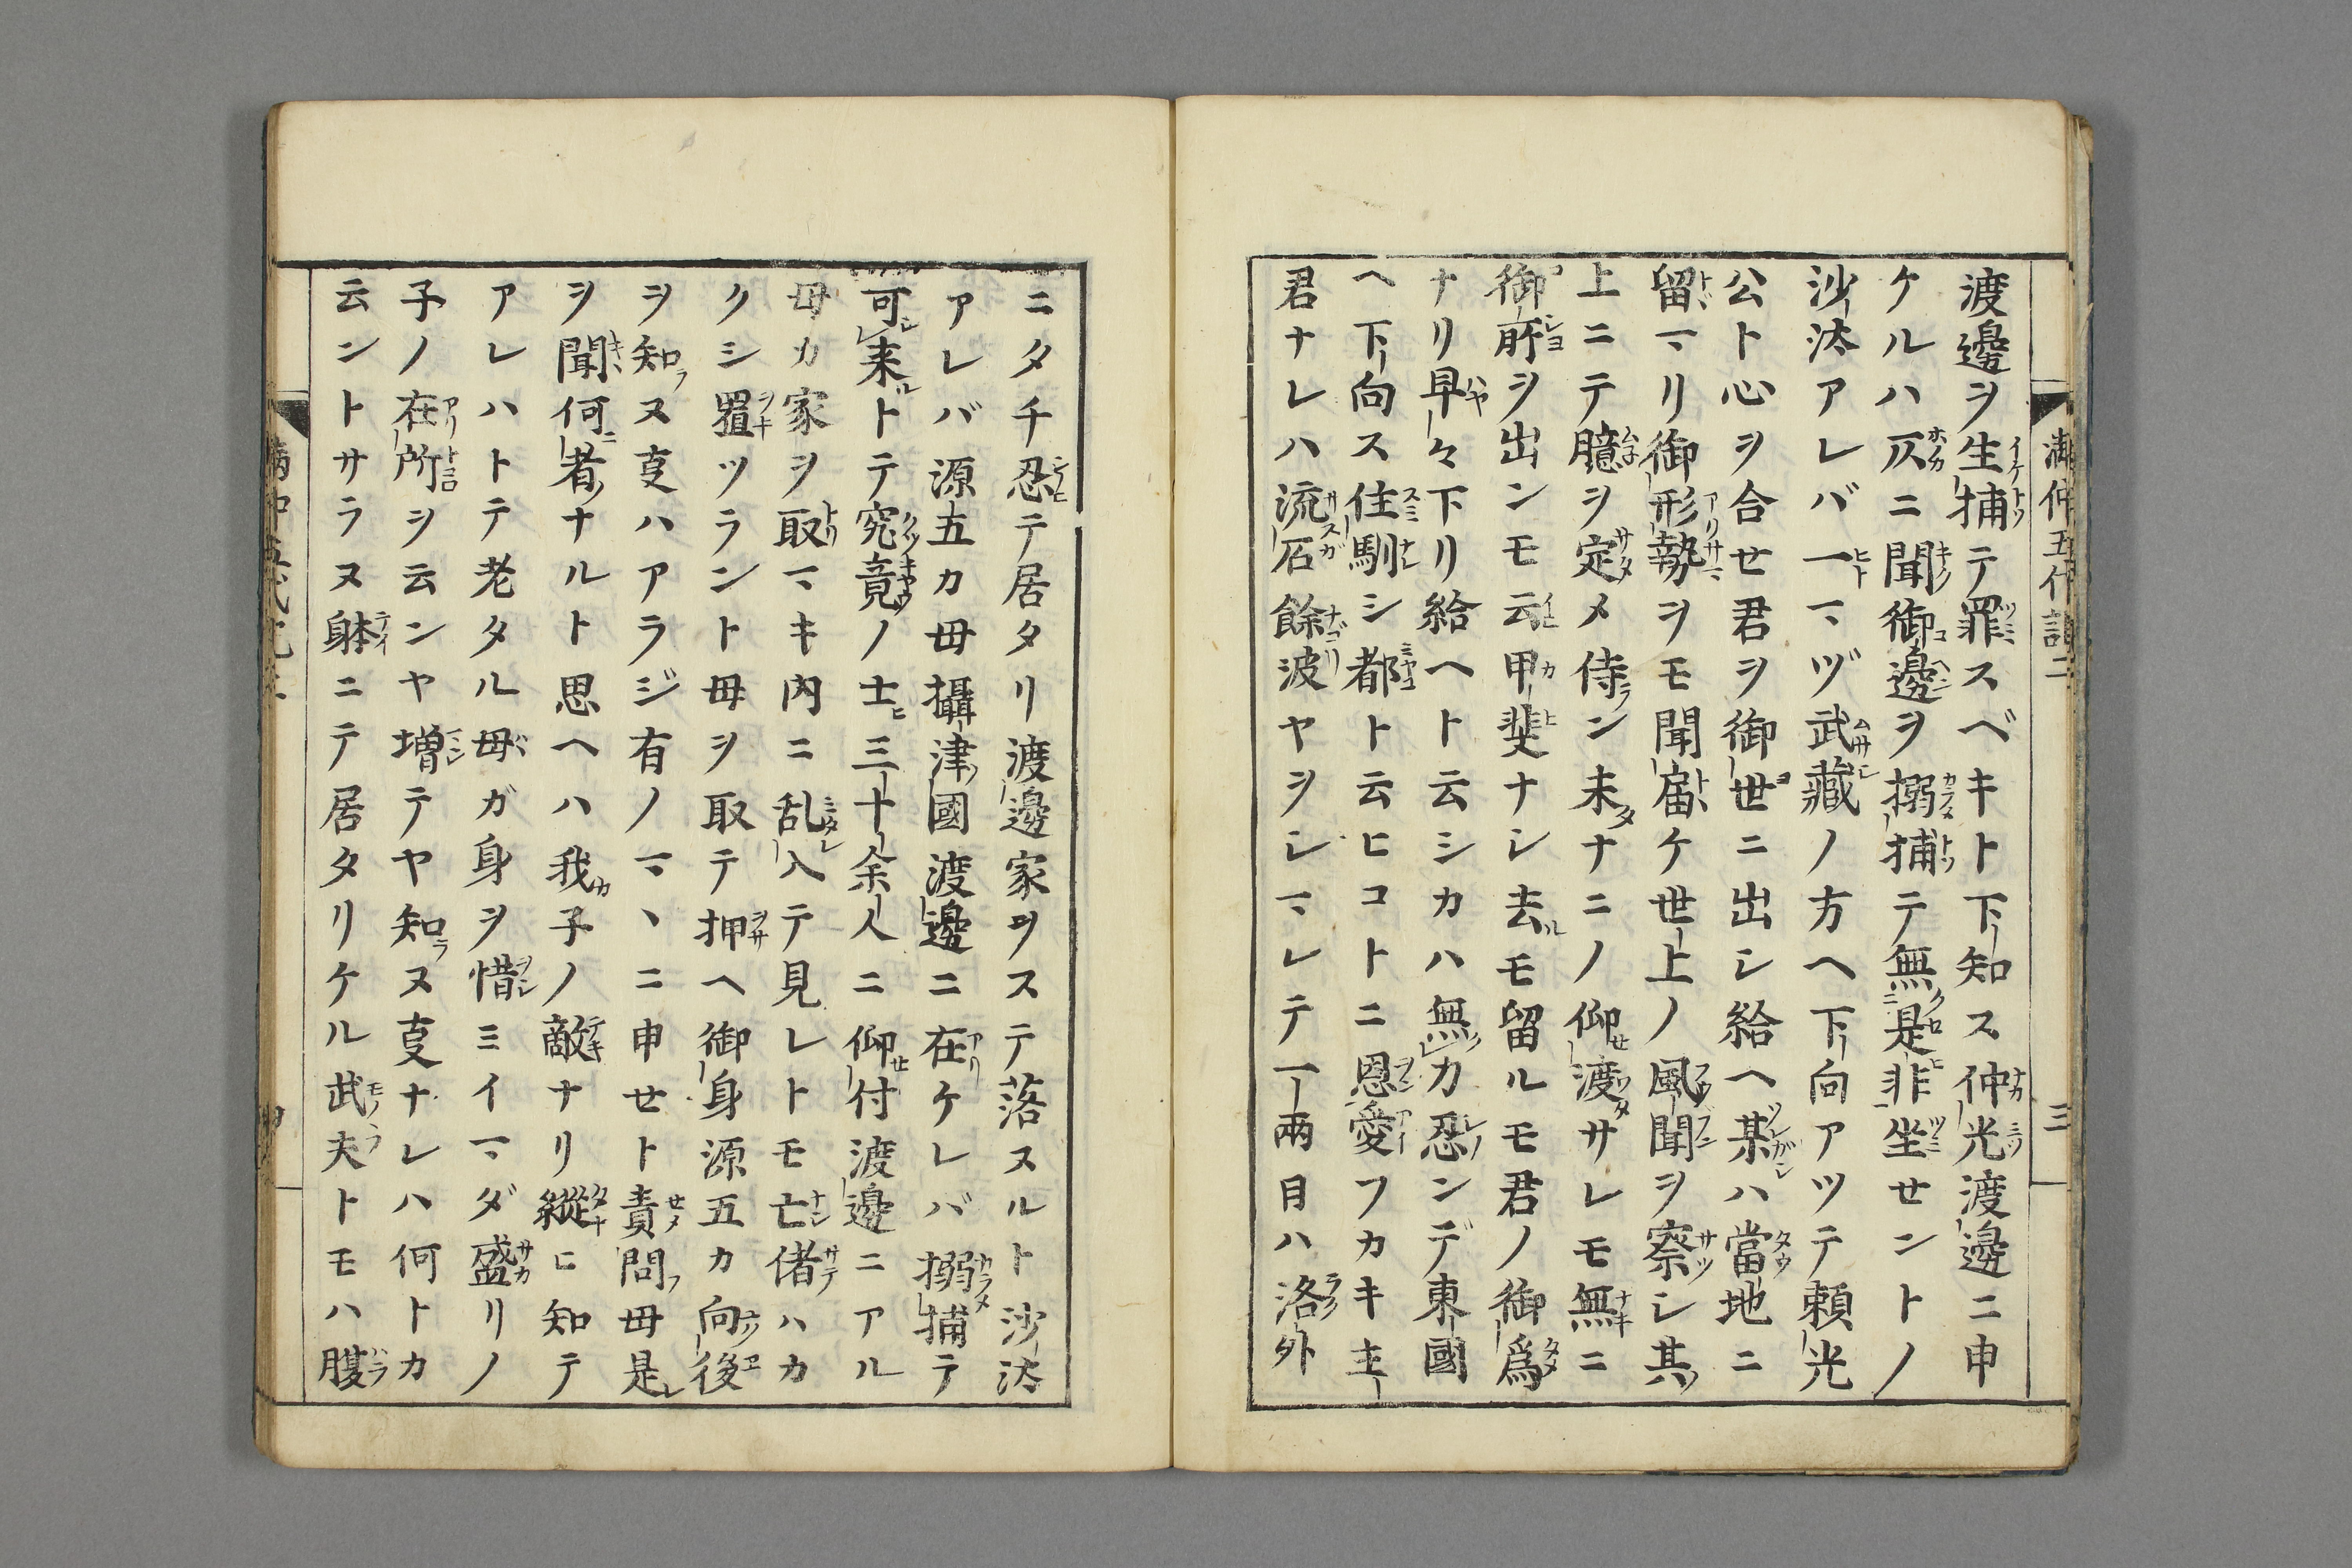 満仲五代記二 三
渡邊ヲ生捕テ罪スベキト下知ス仲光渡邊ニ申
ケルハ仄ニ聞御邊ヲ搦捕テ無是非坐せントノ
沙汰アレバ一マヅ武藏ノ方ヘ下向アツテ頼光
公ト心ヲ合せ君ヲ御世ニ出シ給ヘ某ハ當地ニ
留マリ御形勢ヲモ聞屆ケ世上ノ風聞ヲ察シ其
上ニテ臆ヲ定メ侍ン未ナニノ仰渡サレモ無ニ
御所ヲ出ンモ云甲斐ナシ去モ留ルモ君ノ御爲
ナリ早々下リ給ヘト云シカハ無カ忍ンデ東國
ヘ下向ス住馴シ都ト云ヒコトニ恩愛フカキ主
君ナレハ流石餘波ヤヲシマレテ一兩日ハ洛外
ニタチ忍テ居タリ渡邊家ヲステ落ヌルト沙汰
アレバ源五カ母攝津國渡邊ニ在ケレバ搦捕テ
可来トテ究竟ノ士三十余人ニ仰付渡邊ニアル
母カ家ヲ取マキ内ニ乱入テ見レトモ亡偖ハカ
クシ置ツラント母ヲ取テ押ヘ御身源五カ向後
ヲ知ヌ叓ハアラジ有ノマヽニ申せト責問母是
ヲ聞何者ナルト思ヘハ我子ノ敵ナリ縦ヒ知テ
アレハトテ老タル母ガ身ヲ惜ミイマダ盛リノ
子ノ在所ヲ云ンヤ増テヤ知ヌ叓ナレハ何トカ
云ントサラヌ躰ニテ居タリケル武夫トモハ腹